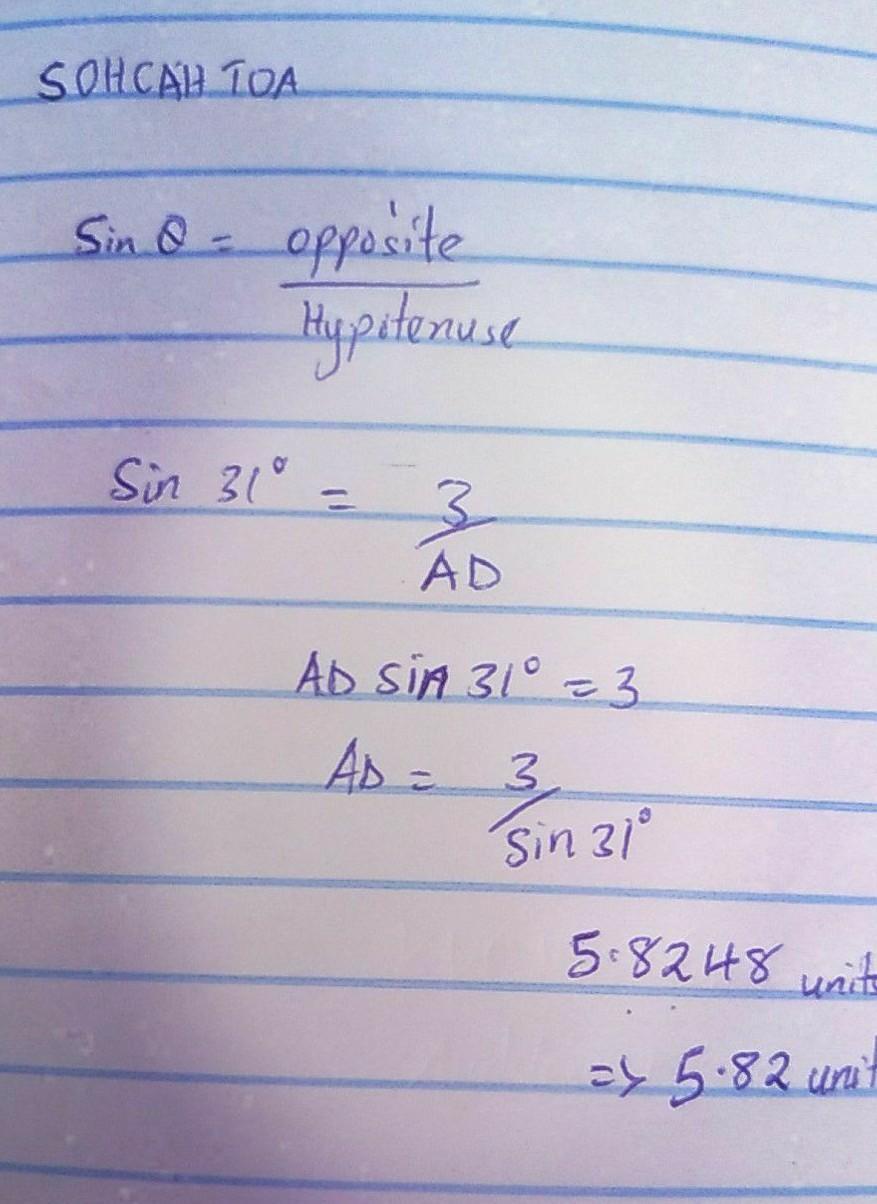 SOHCAH TOA
Sin θ = opposite
Hypotenuse
Sin 31° = 3
AD
AD sin 31° = 3
AD = 3
sin 31°
5.8248 units
=> 5.82 unit